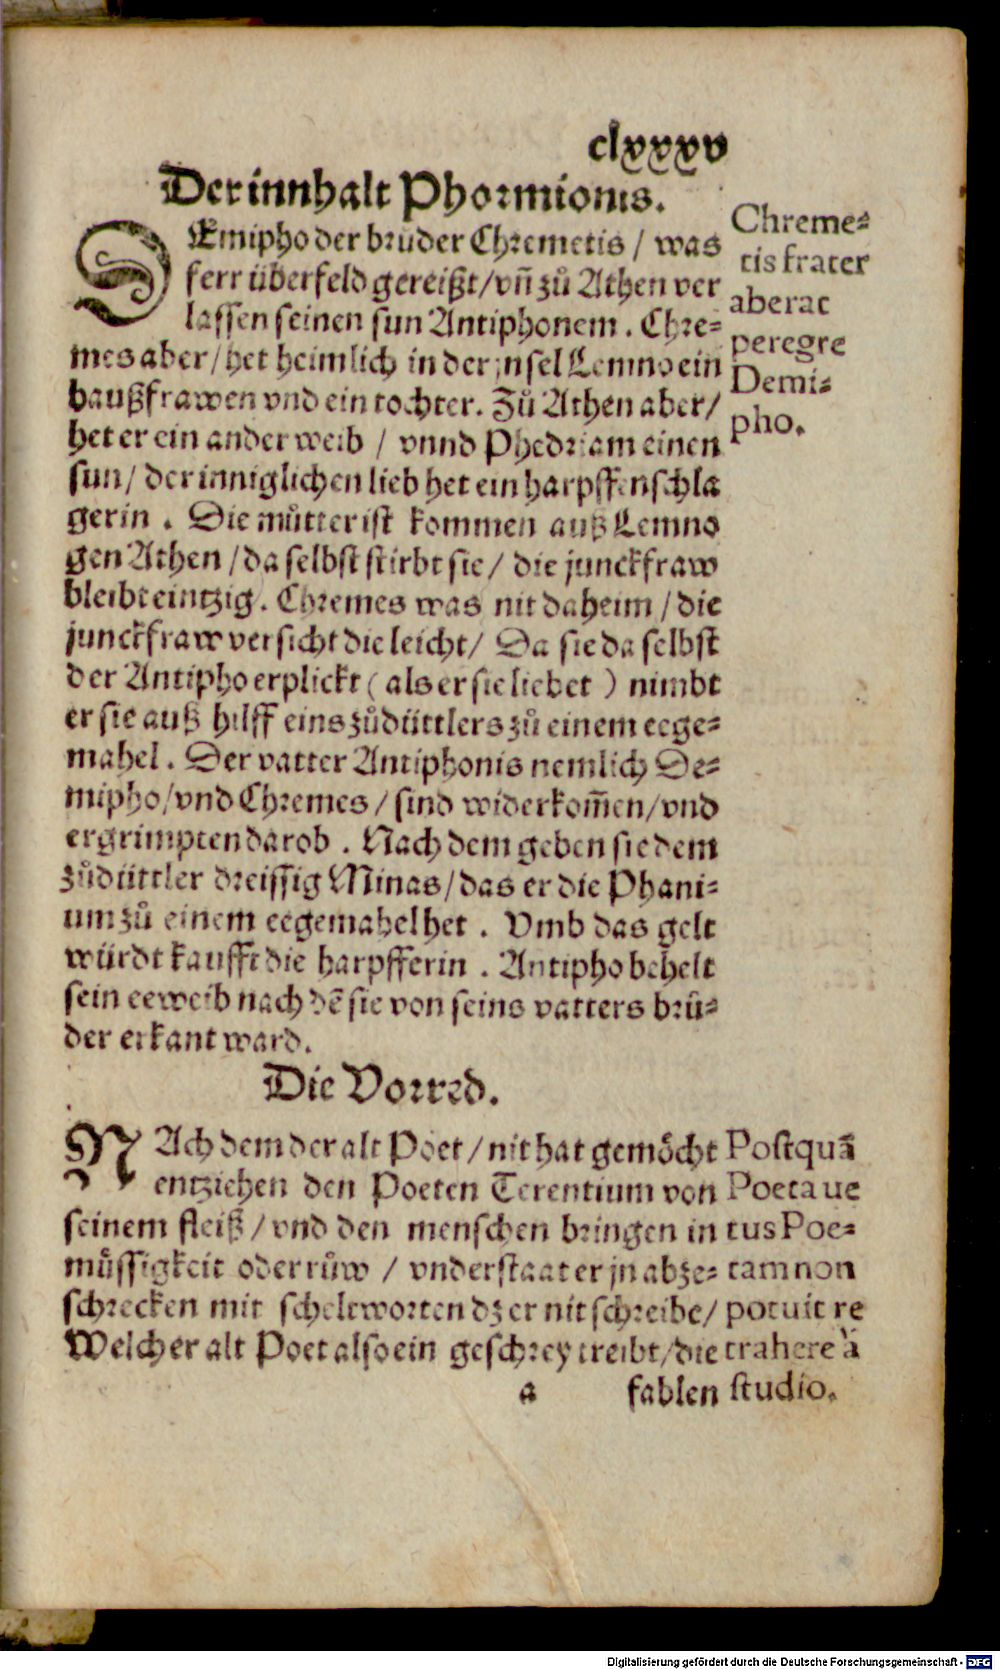 clxxxv
Der innhalt Phormionis.
DEmipho der bruͦder Chremetis / was
ferr überfeld gereißt/vn̄ zuͦ Athen ver
lassen seinen sun Antiphonem. Chre⸗
mes aber/het heimlich in der jnsel Lemno ein
haußfrawen vnd ein tochter. Zuͦ Athen aber/
het er ein ander weib / vnnd Phedriam einen
sun/ der inniglichen lieb het ein harpffenschla
gerin . Die muͦtter ist kommen auß Lemno
gen Athen /da selbst stirbt sie/ die junckfraw
bleibt eintzig. Chremes was nit daheim /die
junckfraw versicht die leicht/ Da sie da selbst
der Antipho erplickt ( als er sie liebet ) nimbt
er sie auß hilff eins zuͦdüttlers zuͦ einem eege⸗
mahel. Der vatter Antiphonis nemlich De⸗
mipho/vnd Chremes/ sind widerkom̄en/vnd
ergrimpten darob . Nach dem geben sie dem
zuͦdüttler dreissig Minas/das er die Phani⸗
um zuͦ einem eegemahel het . Vmb das gelt
würdt kaufft die harpfferin . Antipho behelt
sein eeweib nach dē sie von seins vatters bruͦ⸗
der erkant ward.
Chreme⸗
tis frater
aberat
peregre
Demi⸗
pho.
Die Vorred.
NAch dem der alt Poet /nit hat gemöcht
entziehen den Poeten Terentium von
seinem fleiß/vnd den menschen bringen in
müssigkeit oder ruͦw / vnderstaat er jn abze⸗
schrecken mit scheltworten dz er nit schreibe/
Welcher alt Poet also ein geschrey treibt/die
a fablen
Postquā
Poeta ue
tus Poe⸗
tam non
potuit re
trahere à
studio.
Digitalisierung gefördert durch die Deutsche Forschungsgemeinschaft - DFG